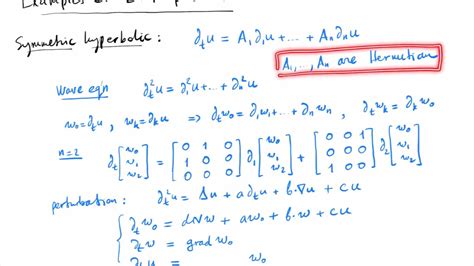 Symmetric hyperbolic : ∂ₜu = A₁∂₁u + ... + Aₙ∂ₙu
A₁, ..., Aₙ are Hermitian
Wave eqn ∂ₜ²u = ∂₁²u + ... + ∂ₙ²u
w₀ = ∂ₜu , wₖ = ∂ₖu ⇒ ∂ₜw₀ = ∂₁w₁ + ... + ∂ₙwₙ , ∂ₜwₖ = ∂ₖw₀
n=2 ∂ₜ [w₀ w₁ w₂] = [0 1 0; 1 0 0; 0 0 0] ∂₁ [w₀ w₁ w₂] + [0 0 1; 0 0 0; 1 0 0] ∂₂ [w₀ w₁ w₂]
perturbation : ∂ₜ²u = Δu + a∂ₜu + b·∇u + cu
∂ₜw₀ = div w + aw₀ + b·w + cu
∂ₜw = grad w₀
∂ₜu = w₀